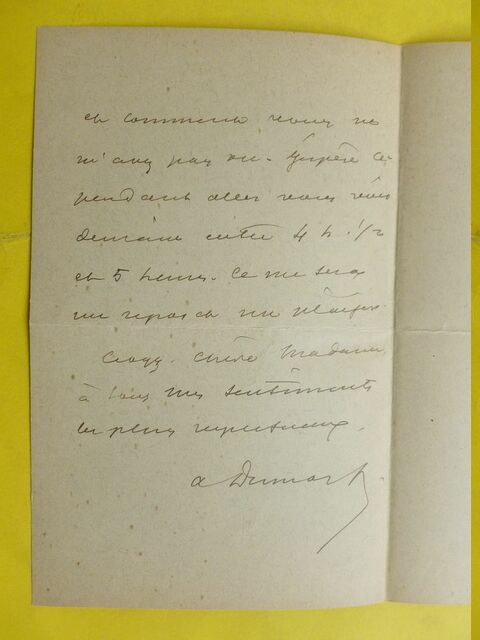 et comment vous ne
m'avez pas vu. J'espère ce-
pendant aller vous voir
demain entre 4 h. 1/2
et 5 heures. Ce me sera
un repos et un plaisir.
Croyez, chère Madame,
à tous mes sentiments
les plus respectueux.